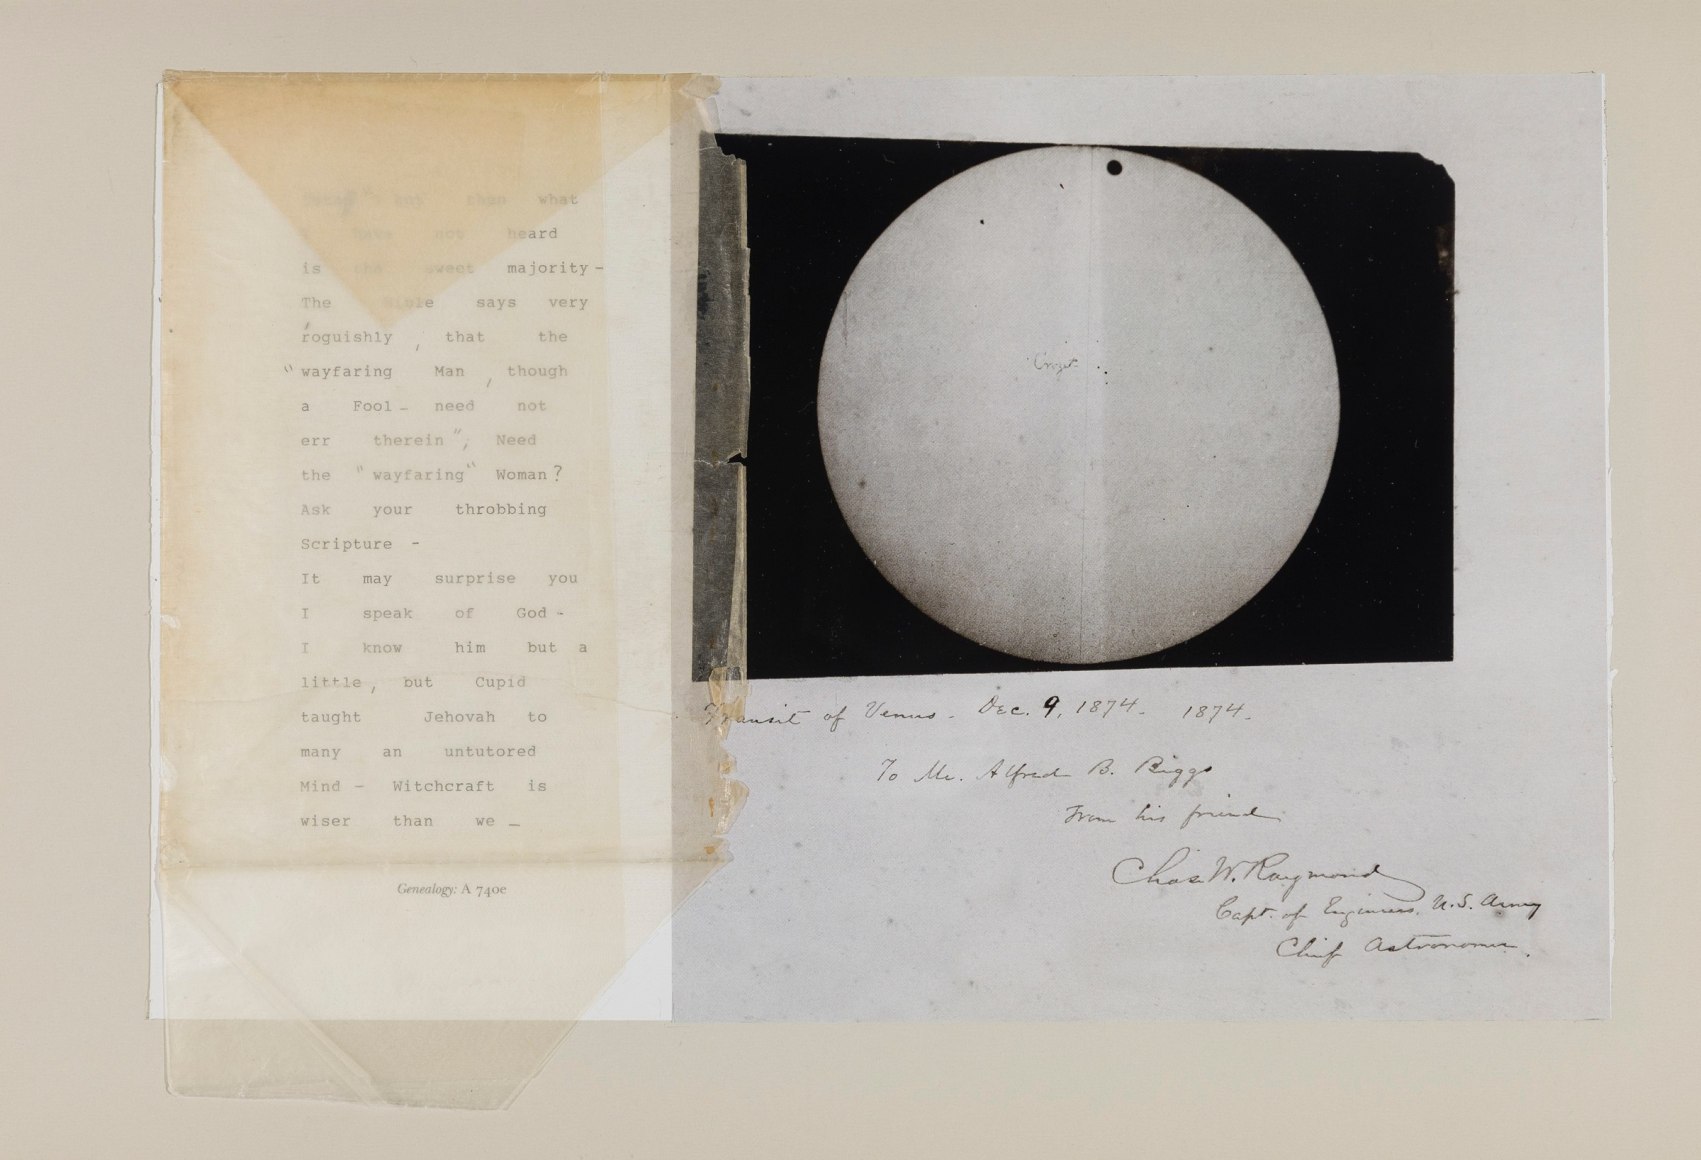 but than what
I have not heard
is the sweet majority -
The Bible says very
roguishly, that the
"wayfaring Man, though
a Fool - need not
err therein", Need
the "wayfaring" Woman?
Ask your throbbing
Scripture -
It may surprise you
I speak of God -
I know him but a
little, but Cupid
taught Jehovah to
many an untutored
Mind - Witchcraft is
wiser than we -
Genealogy: A 740e
Transit of Venus. Dec. 9, 1874. 1874.
To Mr. Alfred B. Riggs
From his friend
Chas. W. Raymond
Capt. of Engineers, U.S. Army
Chief Astronomer.